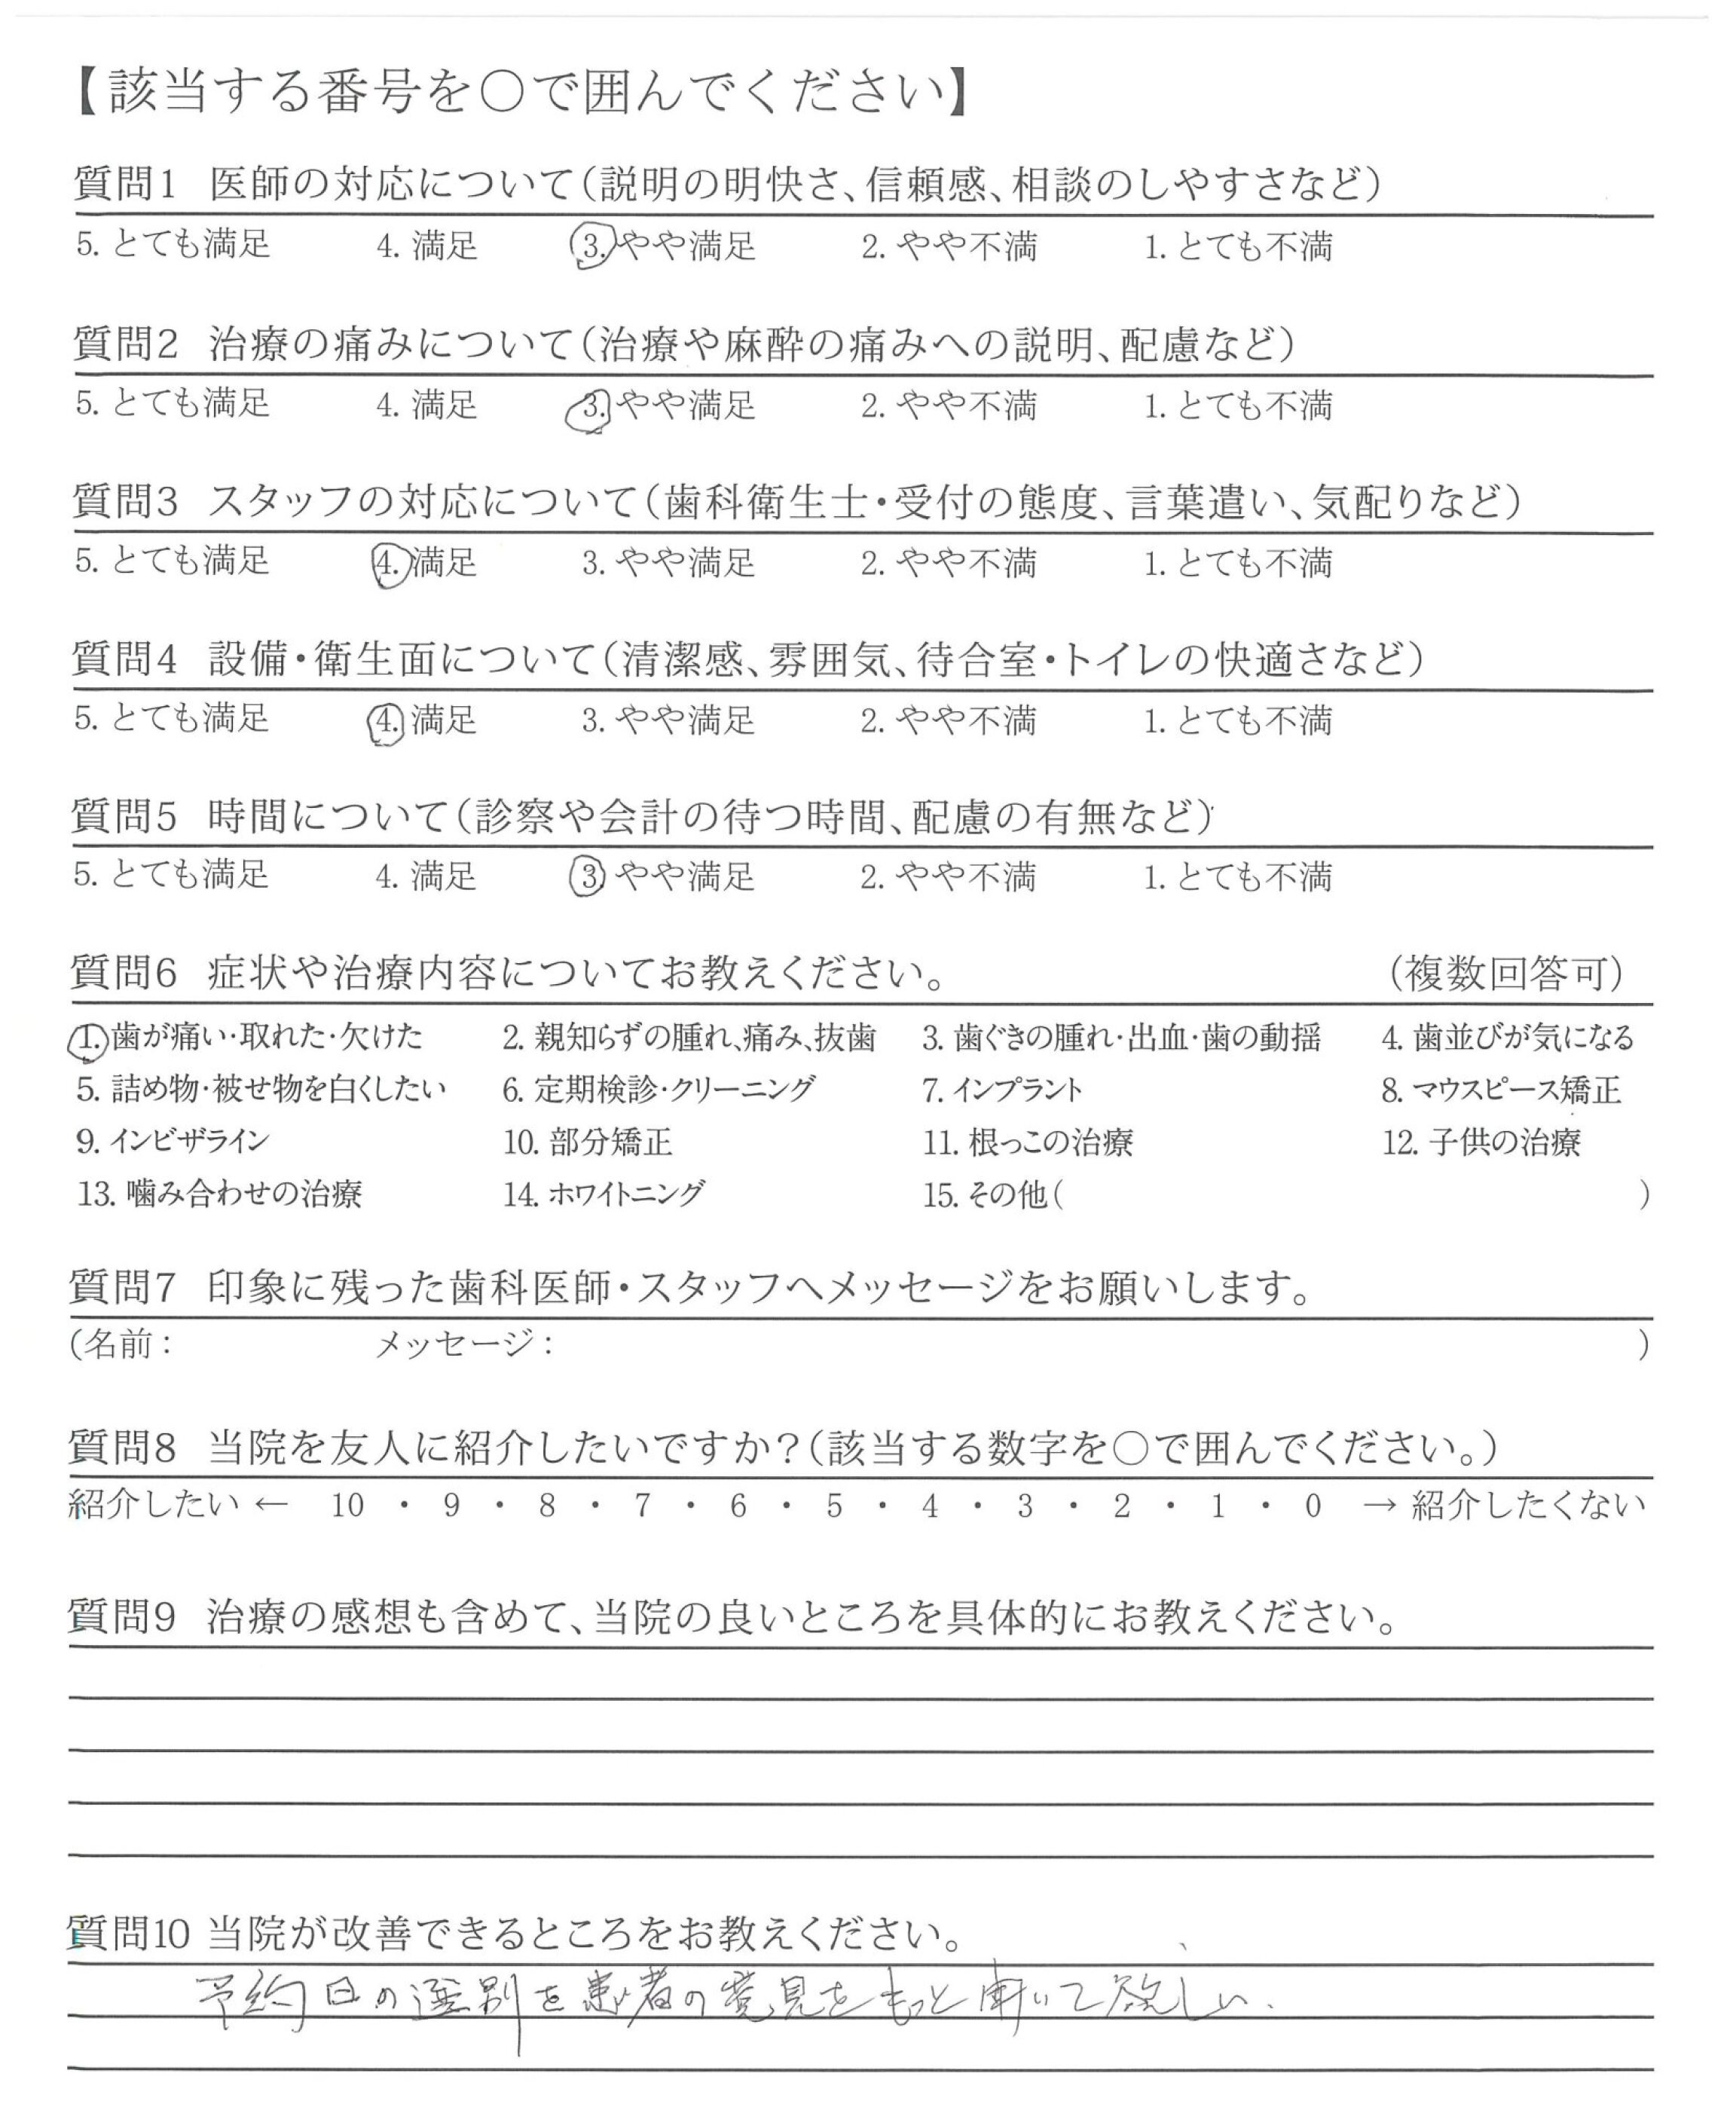 【該当する番号を○で囲んでください】
質問1 医師の対応について（説明の明快さ、信頼感、相談のしやすさなど）
5. とても満足 4. 満足 3. やや満足 2. やや不満 1. とても不満
質問2 治療の痛みについて（治療や麻酔の痛みへの説明、配慮など）
5. とても満足 4. 満足 3. やや満足 2. やや不満 1. とても不満
質問3 スタッフの対応について（歯科衛生士・受付の態度、言葉遣い、気配りなど）
5. とても満足 4. 満足 3. やや満足 2. やや不満 1. とても不満
質問4 設備・衛生面について（清潔感、雰囲気、待合室・トイレの快適さなど）
5. とても満足 4. 満足 3. やや満足 2. やや不満 1. とても不満
質問5 時間について（診察や会計の待つ時間、配慮の有無など）
5. とても満足 4. 満足 3. やや満足 2. やや不満 1. とても不満
質問6 症状や治療内容についてお教えください。 （複数回答可）
1. 歯が痛い・取れた・欠けた 2. 親知らずの腫れ、痛み、抜歯 3. 歯ぐきの腫れ・出血・歯の動揺 4. 歯並びが気になる
5. 詰め物・被せ物を白くしたい 6. 定期検診・クリーニング 7. インプラント 8. マウスピース矯正
9. インビザライン 10. 部分矯正 11. 根っこの治療 12. 子供の治療
13. 噛み合わせの治療 14. ホワイトニング 15. その他（ ）
質問7 印象に残った歯科医師・スタッフへメッセージをお願いします。
（名前： メッセージ： ）
質問8 当院を友人に紹介したいですか？（該当する数字を○で囲んでください。）
紹介したい ← 10 ・ 9 ・ 8 ・ 7 ・ 6 ・ 5 ・ 4 ・ 3 ・ 2 ・ 1 ・ 0 → 紹介したくない
質問9 治療の感想も含めて、当院の良いところを具体的にお教えください。
質問10 当院が改善できるところをお教えください。
予約日の選別を患者の意見をもっと聞いて欲しい.